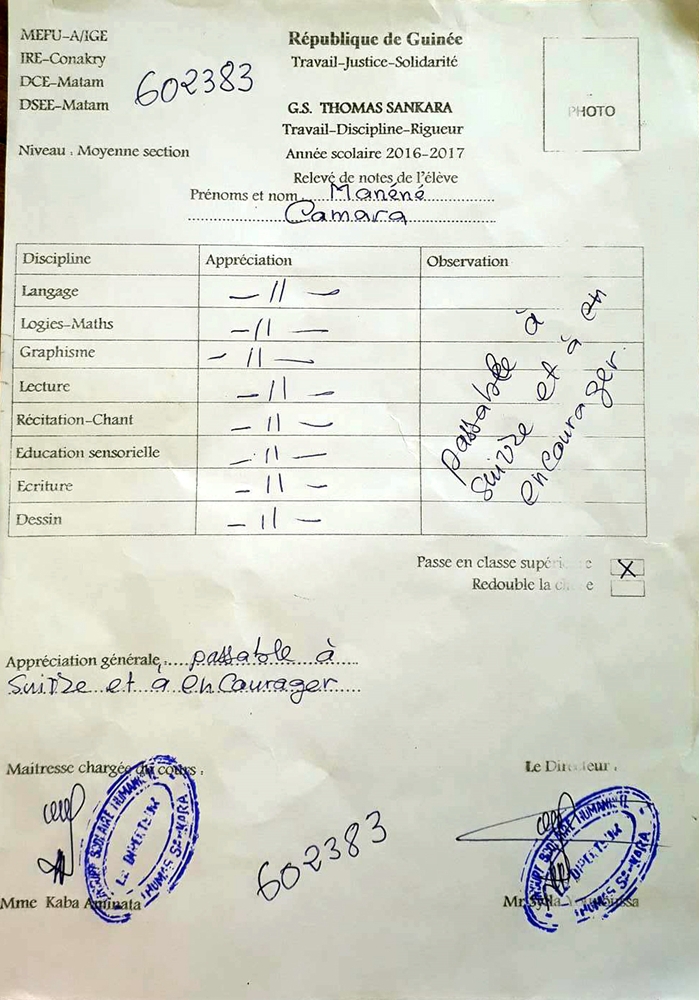 MEFU-A/IGE
IRE-Conakry
DCE-Matam
DSEE-Matam
602383
République de Guinée
Travail-Justice-Solidarité
G.S. THOMAS SANKARA
Travail-Discipline-Rigueur
PHOTO
Niveau : Moyenne section
Année scolaire 2016-2017
Relevé de notes de l'élève
Prénoms et nom Manéné
Camara
Discipline Appréciation Observation
Langage — 11 —
Logies-Maths — 11 —
Graphisme — 11 —
Lecture — 11 —
Récitation-Chant — 11 —
Education sensorielle — 11 —
Ecriture — 11 —
Dessin — 11 —
passable à
suivre et à en
encourager.
Passe en classe supérieure X
Redouble la classe
Appréciation générale : passable à
Suivre et à encourager
Maitresse chargée du cours :
Le Directeur :
SCOLAIRE HUMANI
LE DIRECTEUR
THOMAS SANKARA
602383
SCOLAIRE HUMANI
DIRECTEUR
THOMAS SANKARA
Mme Kaba Aminata
Mr Sylla